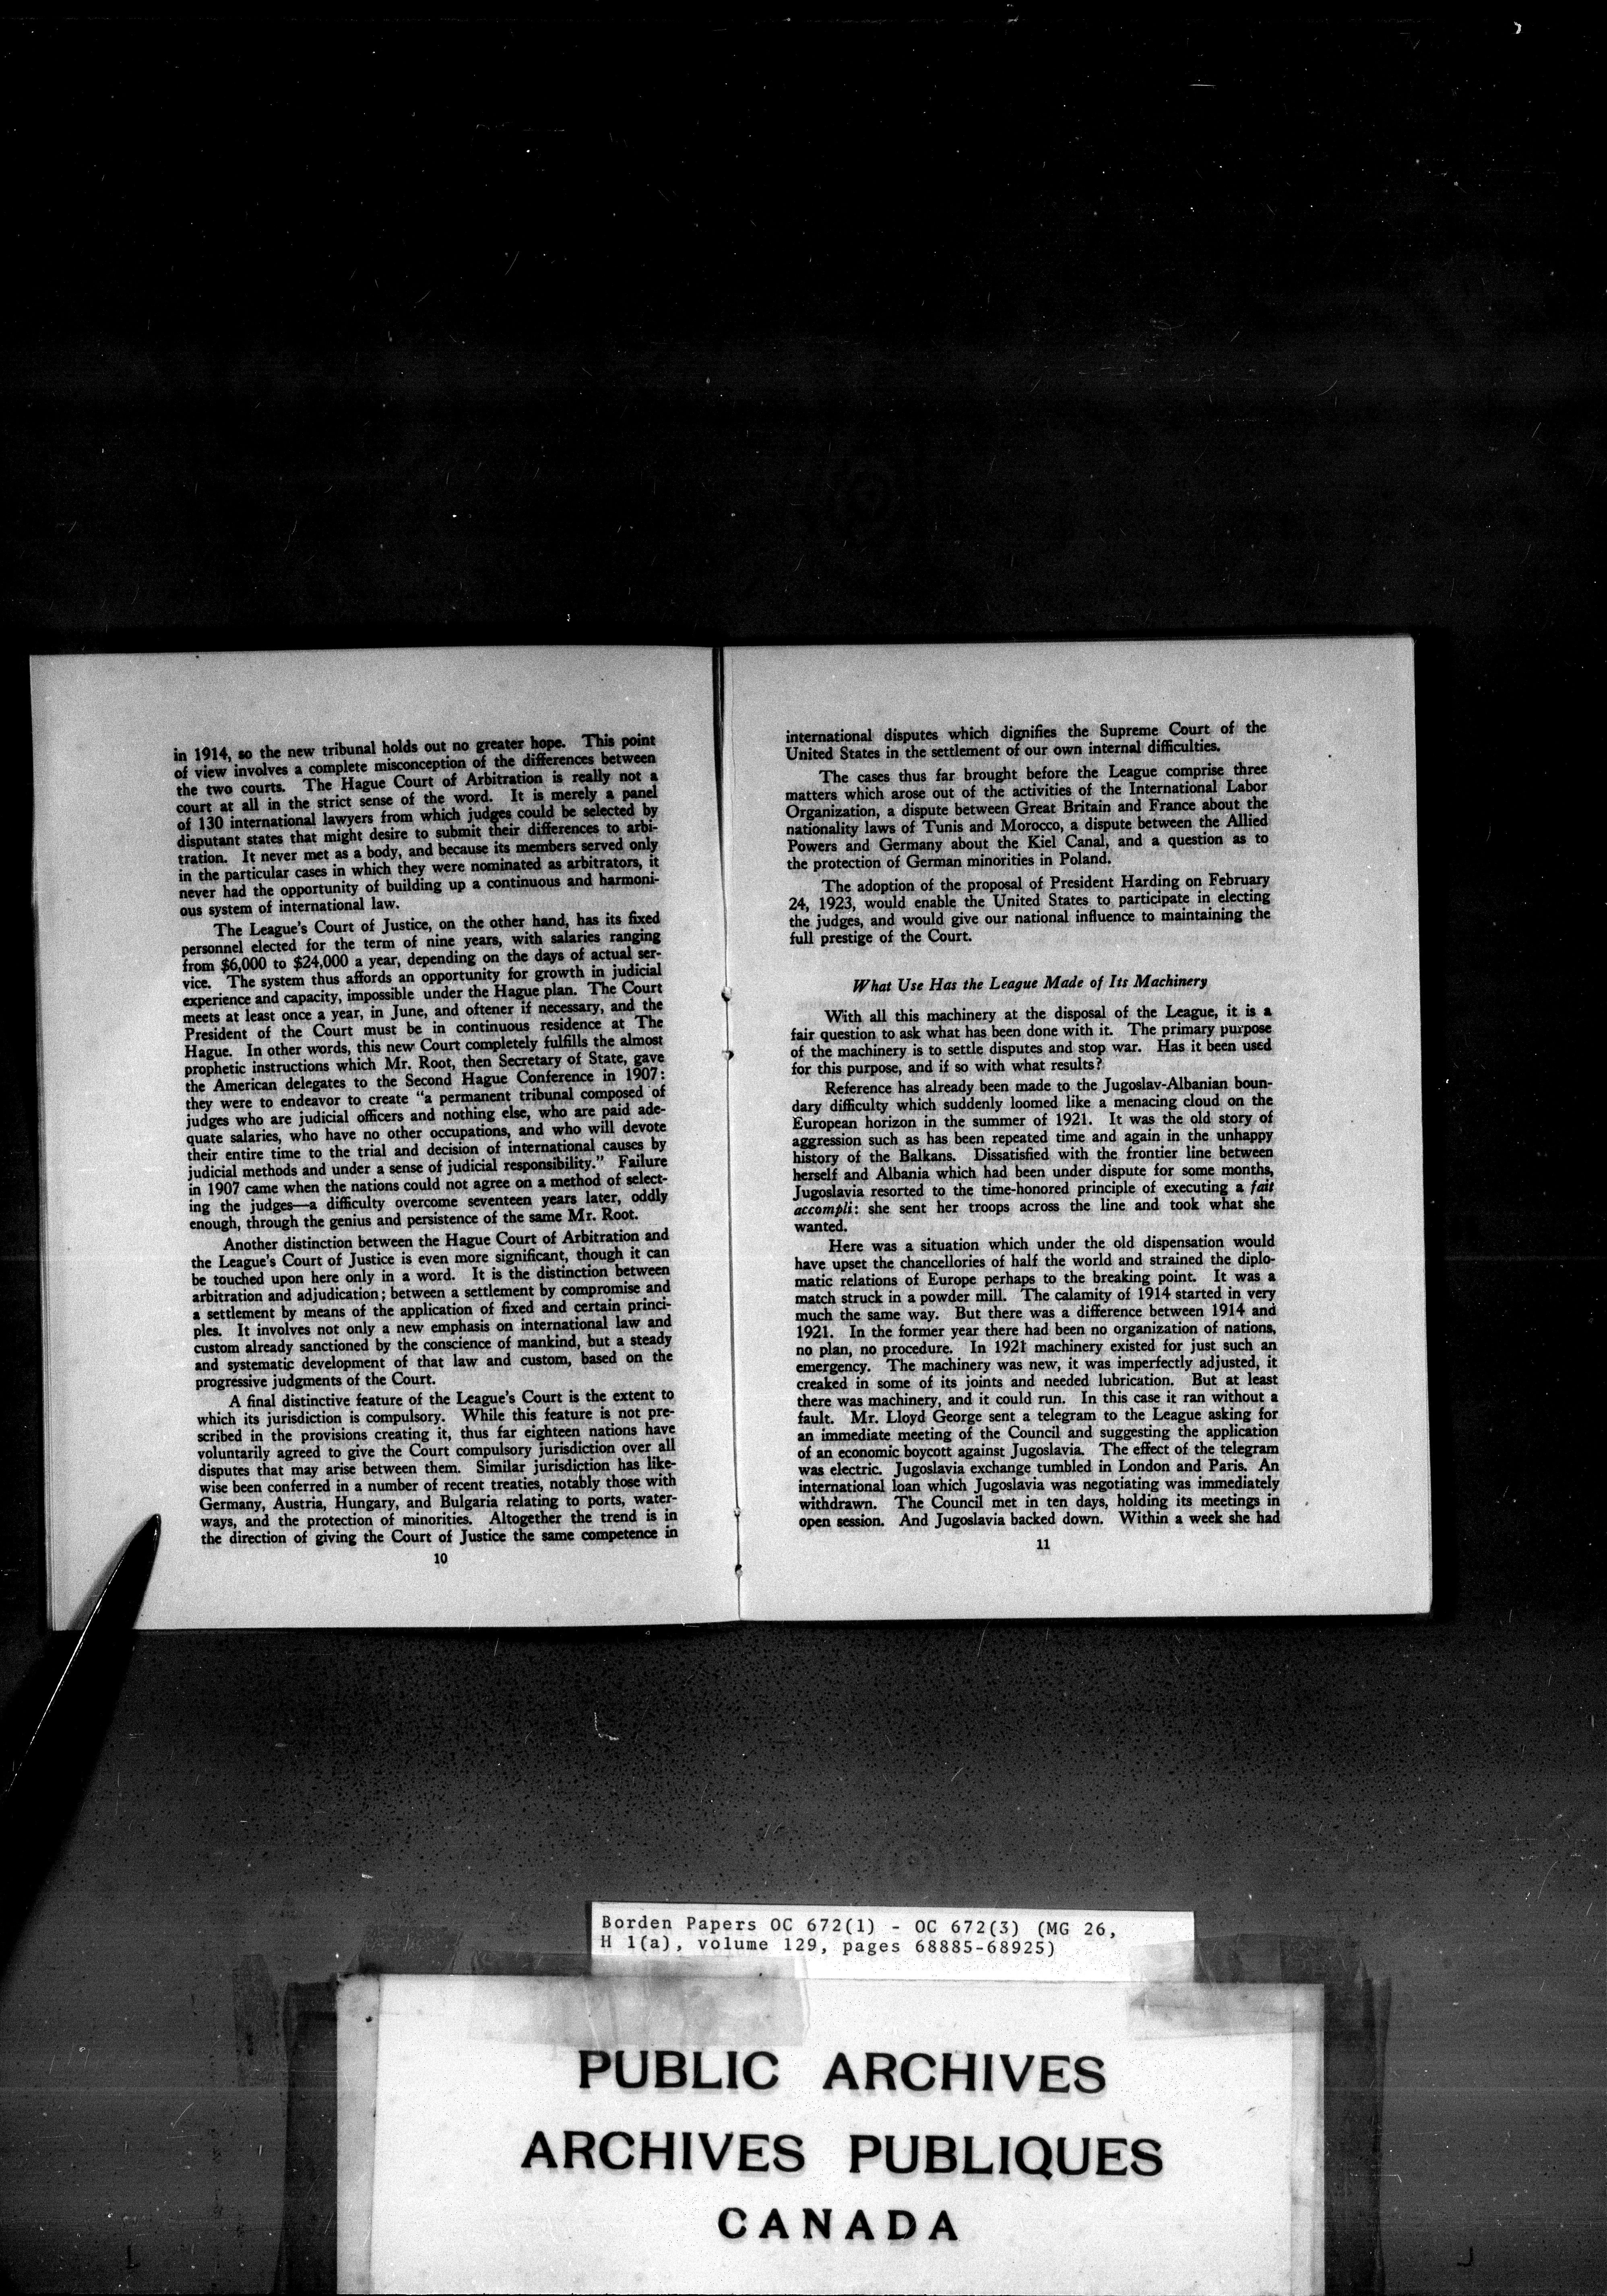 in 1914, so the new tribunal holds out no greater hope. This point
of view involves a complete misconception of the differences between
the two courts. The Hague Court of Arbitration is really not a
court at all in the strict sense of the word. It is merely a panel
of 130 international lawyers from which judges could be selected by
disputant states that might desire to submit their differences to arbi-
tration. It never met as a body, and because its members served only
in the particular cases in which they were nominated as arbitrators, it
never had the opportunity of building up a continuous and harmoni-
ous system of international law.
The League's Court of Justice, on the other hand, has its fixed
personnel elected for the term of nine years, with salaries ranging
from $6,000 to $24,000 a year, depending on the days of actual ser-
vice. The system thus affords an opportunity for growth in judicial
experience and capacity, impossible under the Hague plan. The Court
meets at least once a year, in June, and oftener if necessary, and the
President of the Court must be in continuous residence at The
Hague. In other words, this new Court completely fulfills the almost
prophetic instructions which Mr. Root, then Secretary of State, gave
the American delegates to the Second Hague Conference in 1907:
they were to endeavor to create "a permanent tribunal composed of
judges who are judicial officers and nothing else, who are paid ade-
quate salaries, who have no other occupations, and who will devote
their entire time to the trial and decision of international causes by
judicial methods and under a sense of judicial responsibility." Failure
in 1907 came when the nations could not agree on a method of select-
ing the judges—a difficulty overcome seventeen years later, oddly
enough, through the genius and persistence of the same Mr. Root.
Another distinction between the Hague Court of Arbitration and
the League's Court of Justice is even more significant, though it can
be touched upon here only in a word. It is the distinction between
arbitration and adjudication; between a settlement by compromise and
a settlement by means of the application of fixed and certain princi-
ples. It involves not only a new emphasis on international law and
custom already sanctioned by the conscience of mankind, but a steady
and systematic development of that law and custom, based on the
progressive judgments of the Court.
A final distinctive feature of the League's Court is the extent to
which its jurisdiction is compulsory. While this feature is not pre-
scribed in the provisions creating it, thus far eighteen nations have
voluntarily agreed to give the Court compulsory jurisdiction over all
disputes that may arise between them. Similar jurisdiction has like-
wise been conferred in a number of recent treaties, notably those with
Germany, Austria, Hungary, and Bulgaria relating to ports, water-
ways, and the protection of minorities. Altogether the trend is in
the direction of giving the Court of Justice the same competence in
10
international disputes which dignifies the Supreme Court of the
United States in the settlement of our own internal difficulties.
The cases thus far brought before the League comprise three
matters which arose out of the activities of the International Labor
Organization, a dispute between Great Britain and France about the
nationality laws of Tunis and Morocco, a dispute between the Allied
Powers and Germany about the Kiel Canal, and a question as to
the protection of German minorities in Poland.
The adoption of the proposal of President Harding on February
24, 1923, would enable the United States to participate in electing
the judges, and would give our national influence to maintaining the
full prestige of the Court.
What Use Has the League Made of Its Machinery
With all this machinery at the disposal of the League, it is a
fair question to ask what has been done with it. The primary purpose
of the machinery is to settle disputes and stop war. Has it been used
for this purpose, and if so with what results?
Reference has already been made to the Jugoslav-Albanian boun-
dary difficulty which suddenly loomed like a menacing cloud on the
European horizon in the summer of 1921. It was the old story of
aggression such as has been repeated time and again in the unhappy
history of the Balkans. Dissatisfied with the frontier line between
herself and Albania which had been under dispute for some months,
Jugoslavia resorted to the time-honored principle of executing a fait
accompli: she sent her troops across the line and took what she
wanted.
Here was a situation which under the old dispensation would
have upset the chancellories of half the world and strained the diplo-
matic relations of Europe perhaps to the breaking point. It was a
match struck in a powder mill. The calamity of 1914 started in very
much the same way. But there was a difference between 1914 and
1921. In the former year there had been no organization of nations,
no plan, no procedure. In 1921 machinery existed for just such an
emergency. The machinery was new, it was imperfectly adjusted, it
creaked in some of its joints and needed lubrication. But at least
there was machinery, and it could run. In this case it ran without a
fault. Mr. Lloyd George sent a telegram to the League asking for
an immediate meeting of the Council and suggesting the application
of an economic boycott against Jugoslavia. The effect of the telegram
was electric. Jugoslavia exchange tumbled in London and Paris. An
international loan which Jugoslavia was negotiating was immediately
withdrawn. The Council met in ten days, holding its meetings in
open session. And Jugoslavia backed down. Within a week she had
11
Borden Papers OC 672(1) - OC 672(3) (MG 26,
H 1(a), volume 129, pages 68885-68925)
PUBLIC ARCHIVES
ARCHIVES PUBLIQUES
CANADA